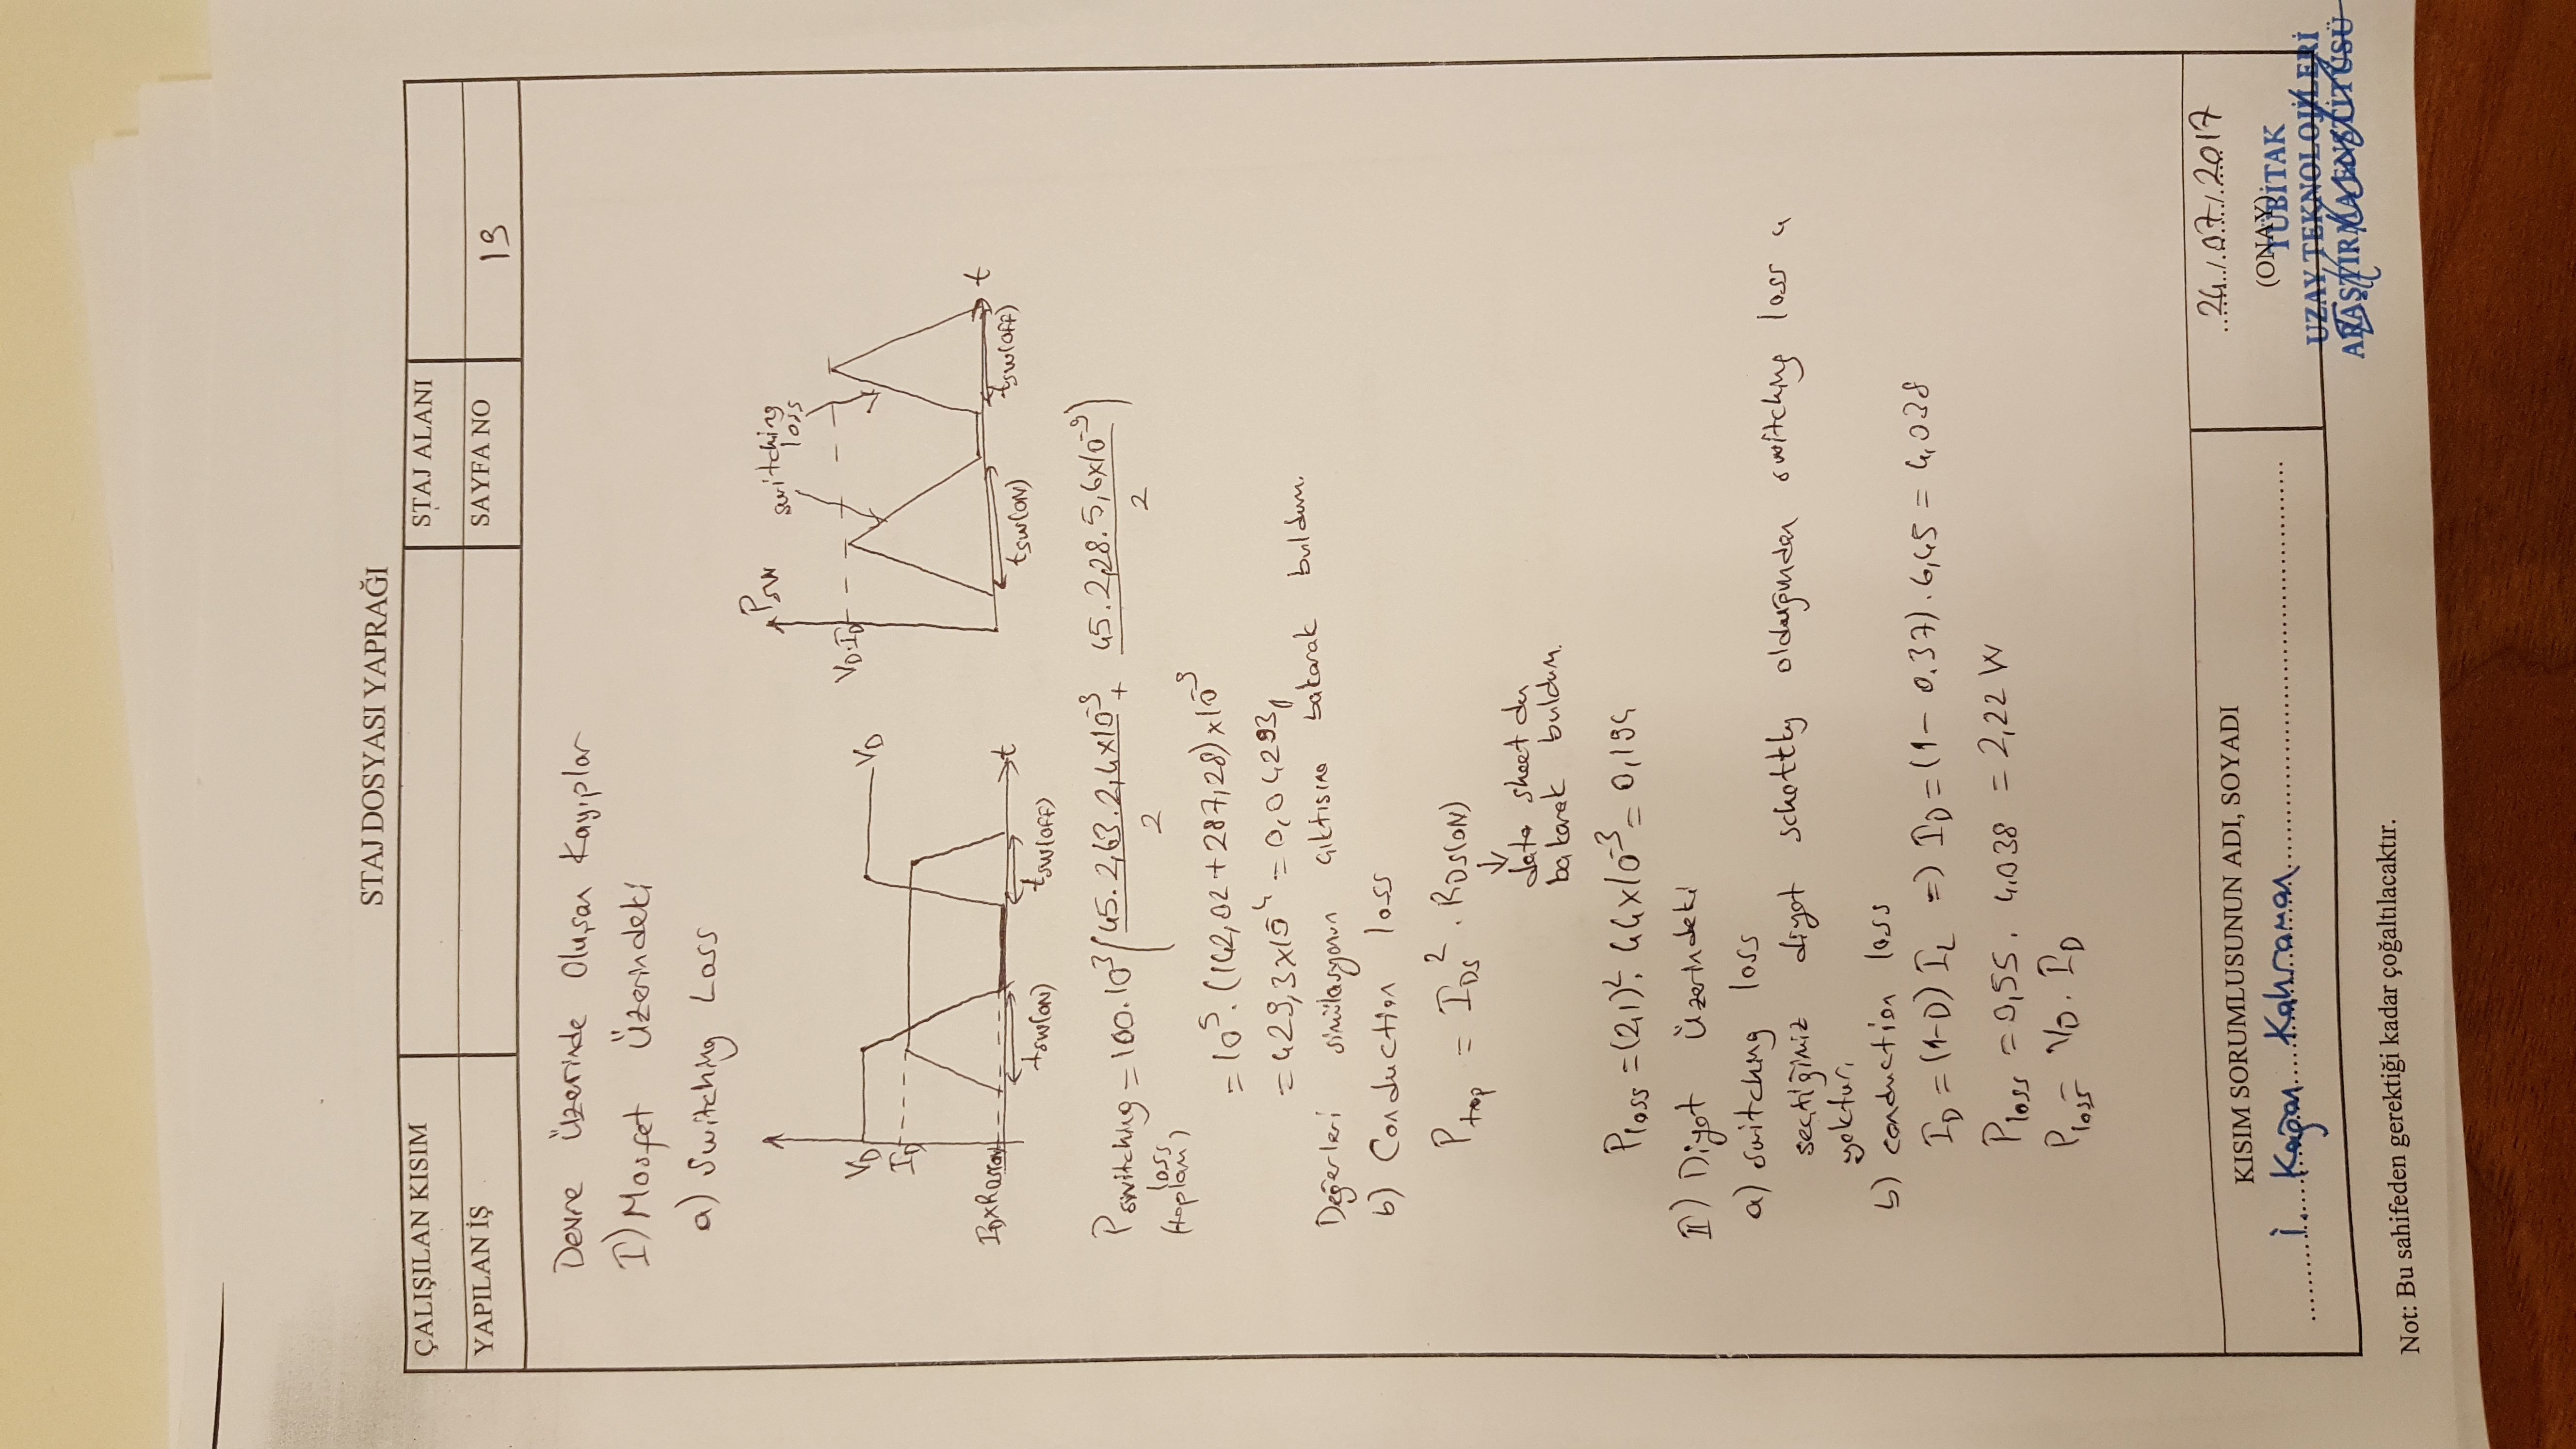 STAJ DOSYASI YAPRAĞI
ÇALIŞILAN KISIM
STAJ ALANI
YAPILAN İŞ
SAYFA NO
19
Devre Üzerinde Oluşan Kayıplar
I) Mosfet Üzerindeki
a) Switching Loss
VD
ID
IDxRds(on)
VD
t
tsw(ON)
tsw(OFF)
PSW
switching
loss
VD.ID
t
tsw(ON)
tsw(OFF)
Pswitching loss (toplam) = 100.10³ (45.2,63.2,4x10⁻⁹/2 + 45.2,28.5,6x10⁻⁹/2)
= 10⁵.(142,02+287,28)x10⁻⁹
= 429,3x10⁻⁴ = 0,04293
Değerleri simülasyonun çıktısına bakarak buldum.
b) Conduction loss
Ptop = IDS² . RDS(ON)
↓
data sheet den
bakarak buldum.
Ploss = (2,1)². 44x10⁻³ = 0,194
II) Diyot Üzerindeki
a) switching loss
seçtiğimiz diyot schottky olduğundan switching loss u
yoktur.
b) conduction loss
ID = (1-D) IL => ID = (1- 0.37).6,45 = 4,038
Ploss = 0,55 . 4.038 = 2,22 W
Ploss = VD . ID
KISIM SORUMLUSUNUN ADI, SOYADI
İ. Kağan Kahraman
24/07/2017
(ONAY)
TÜBİTAK
UZAY TEKNOLOJİLERİ
ARAŞTIRMA ENSTİTÜSÜ
Not: Bu sahifeden gerektiği kadar çoğaltılacaktır.